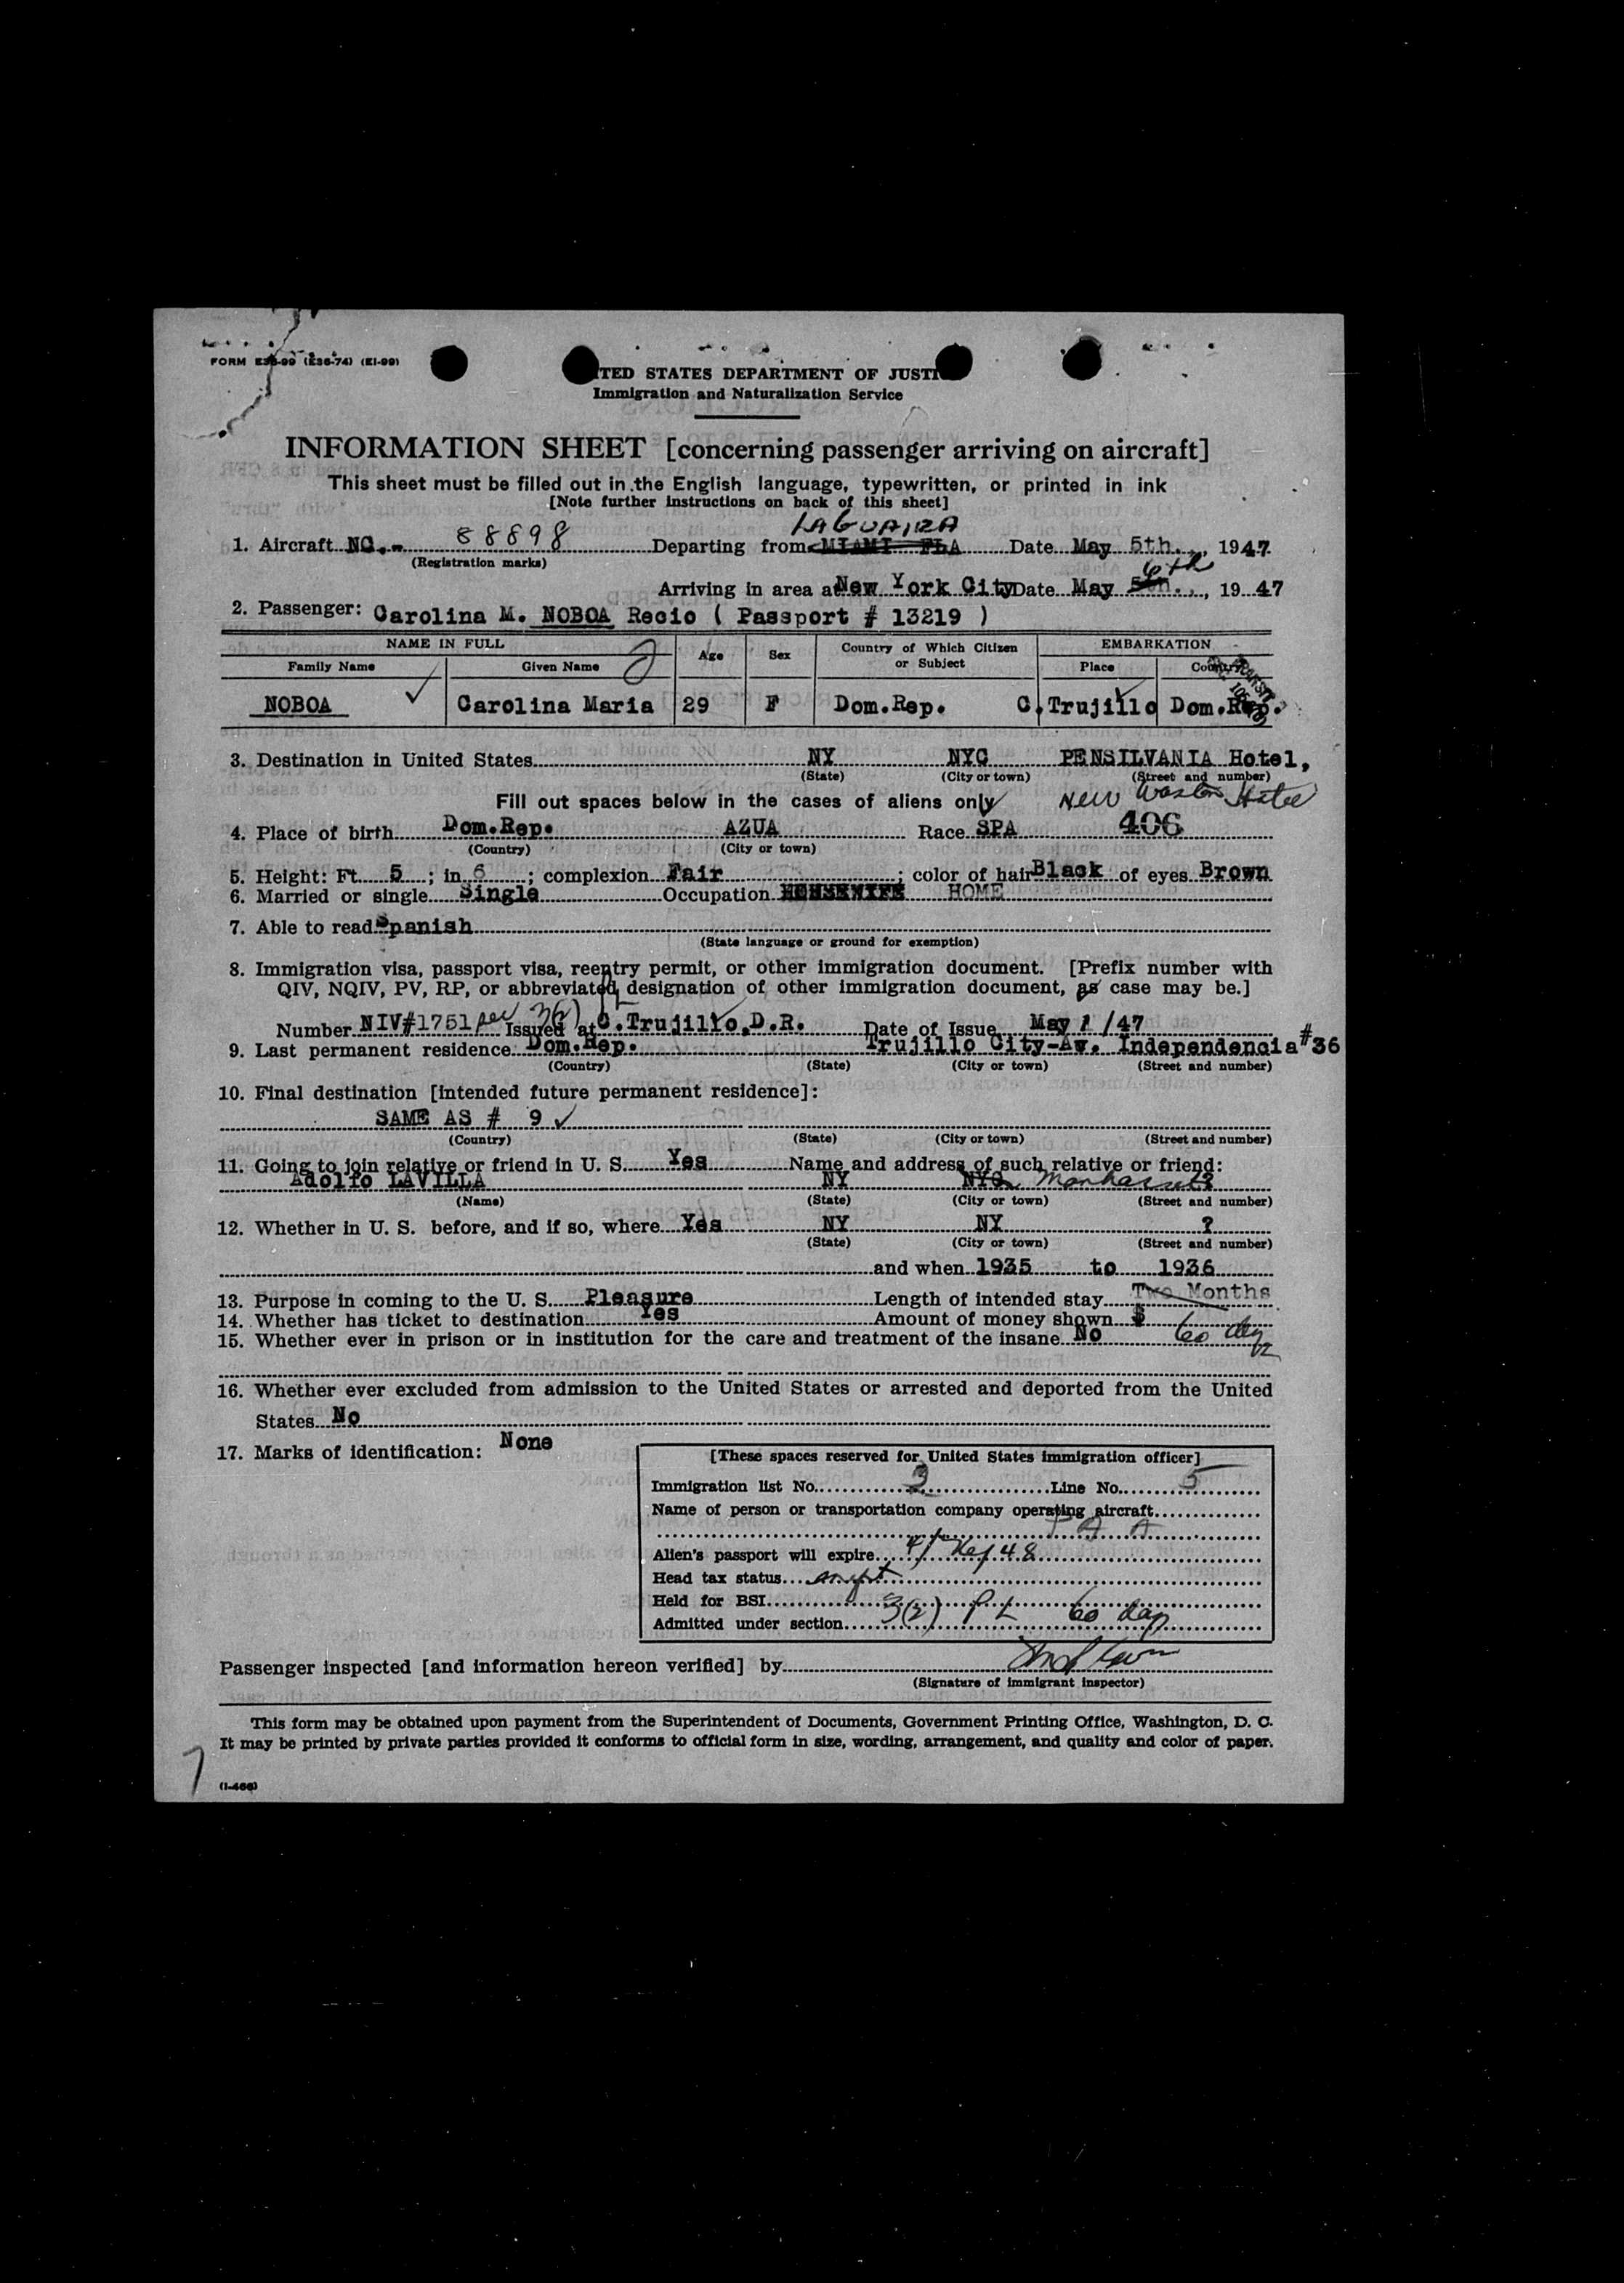 FORM E36-99 (E36-74) (EI-99)
UNITED STATES DEPARTMENT OF JUSTI
Immigration and Naturalization Service
INFORMATION SHEET [concerning passenger arriving on aircraft]
This sheet must be filled out in the English language, typewritten, or printed in ink
[Note further instructions on back of this sheet]
LAGUAIRA
1. Aircraft NC.- 88898 Departing from MIAMI FLA Date May 5th., 1947
(Registration marks)
6th
Arriving in area at New York City Date May 5th., 1947
2. Passenger: Carolina M. NOBOA Recio ( Passport # 13219 )
NAME IN FULL Age Sex Country of Which Citizen or Subject EMBARKATION
Family Name Given Name Place Country
NOBOA Carolina Maria 29 F Dom.Rep. C.Trujillo Dom.Rep.
3. Destination in United States NY NYC PENSILVANIA Hotel,
(State) (City or town) (Street and number)
Fill out spaces below in the cases of aliens only New Weston Hotel
4. Place of birth Dom.Rep. AZUA Race SPA 406
(Country) (City or town)
5. Height: Ft. 5; in 6; complexion Fair; color of hair Black of eyes Brown
6. Married or single Single Occupation HOUSEWIFE HOME
7. Able to read Spanish
(State language or ground for exemption)
8. Immigration visa, passport visa, reentry permit, or other immigration document. [Prefix number with
QIV, NQIV, PV, RP, or abbreviated designation of other immigration document, as case may be.]
Number NIV#1751 sec 3(2) Issued at C.Trujillo,D.R. Date of Issue May 1 /47
9. Last permanent residence Dom.Rep. Trujillo City-Av. Independencia #36
(Country) (State) (City or town) (Street and number)
10. Final destination [intended future permanent residence]:
SAME AS # 9
(Country) (State) (City or town) (Street and number)
11. Going to join relative or friend in U. S. Yes Name and address of such relative or friend:
Adolfo LAVILLA NY NYC Manhasset ?
(Name) (State) (City or town) (Street and number)
12. Whether in U. S. before, and if so, where Yes NY NY ?
(State) (City or town) (Street and number)
and when 1935 to 1936
13. Purpose in coming to the U. S. Pleasure Length of intended stay Two Months
14. Whether has ticket to destination Yes Amount of money shown $
15. Whether ever in prison or in institution for the care and treatment of the insane No 60 days
16. Whether ever excluded from admission to the United States or arrested and deported from the United
States No
17. Marks of identification: None
[These spaces reserved for United States immigration officer]
Immigration list No. 3 Line No. 5
Name of person or transportation company operating aircraft
P A A
Alien's passport will expire 48
Head tax status exempt
Held for BSI
Admitted under section 3(2) P L 60 days
Passenger inspected [and information hereon verified] by
(Signature of immigrant inspector)
This form may be obtained upon payment from the Superintendent of Documents, Government Printing Office, Washington, D. C.
It may be printed by private parties provided it conforms to official form in size, wording, arrangement, and quality and color of paper.
7
(I-466)